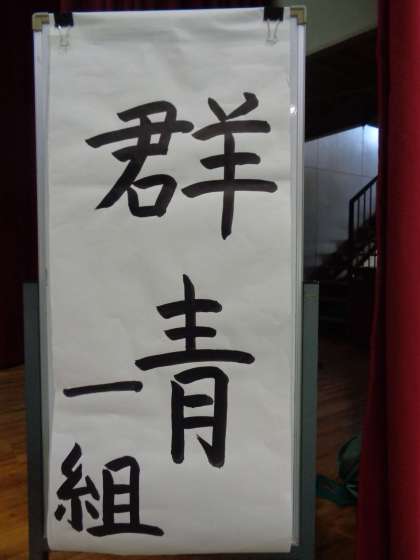 群青
一組